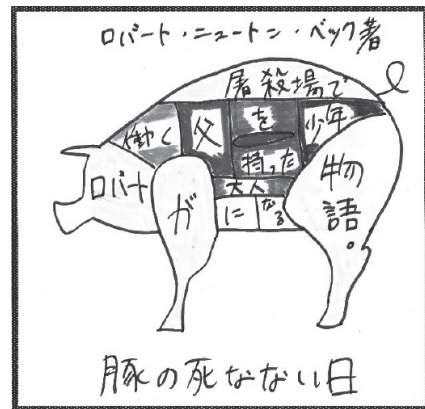 ロバート・ニュートン・ペック著
屠殺場で
働く 父 を
持った
少年
ロバート が
大人
に なる
物語。
豚の死なない日